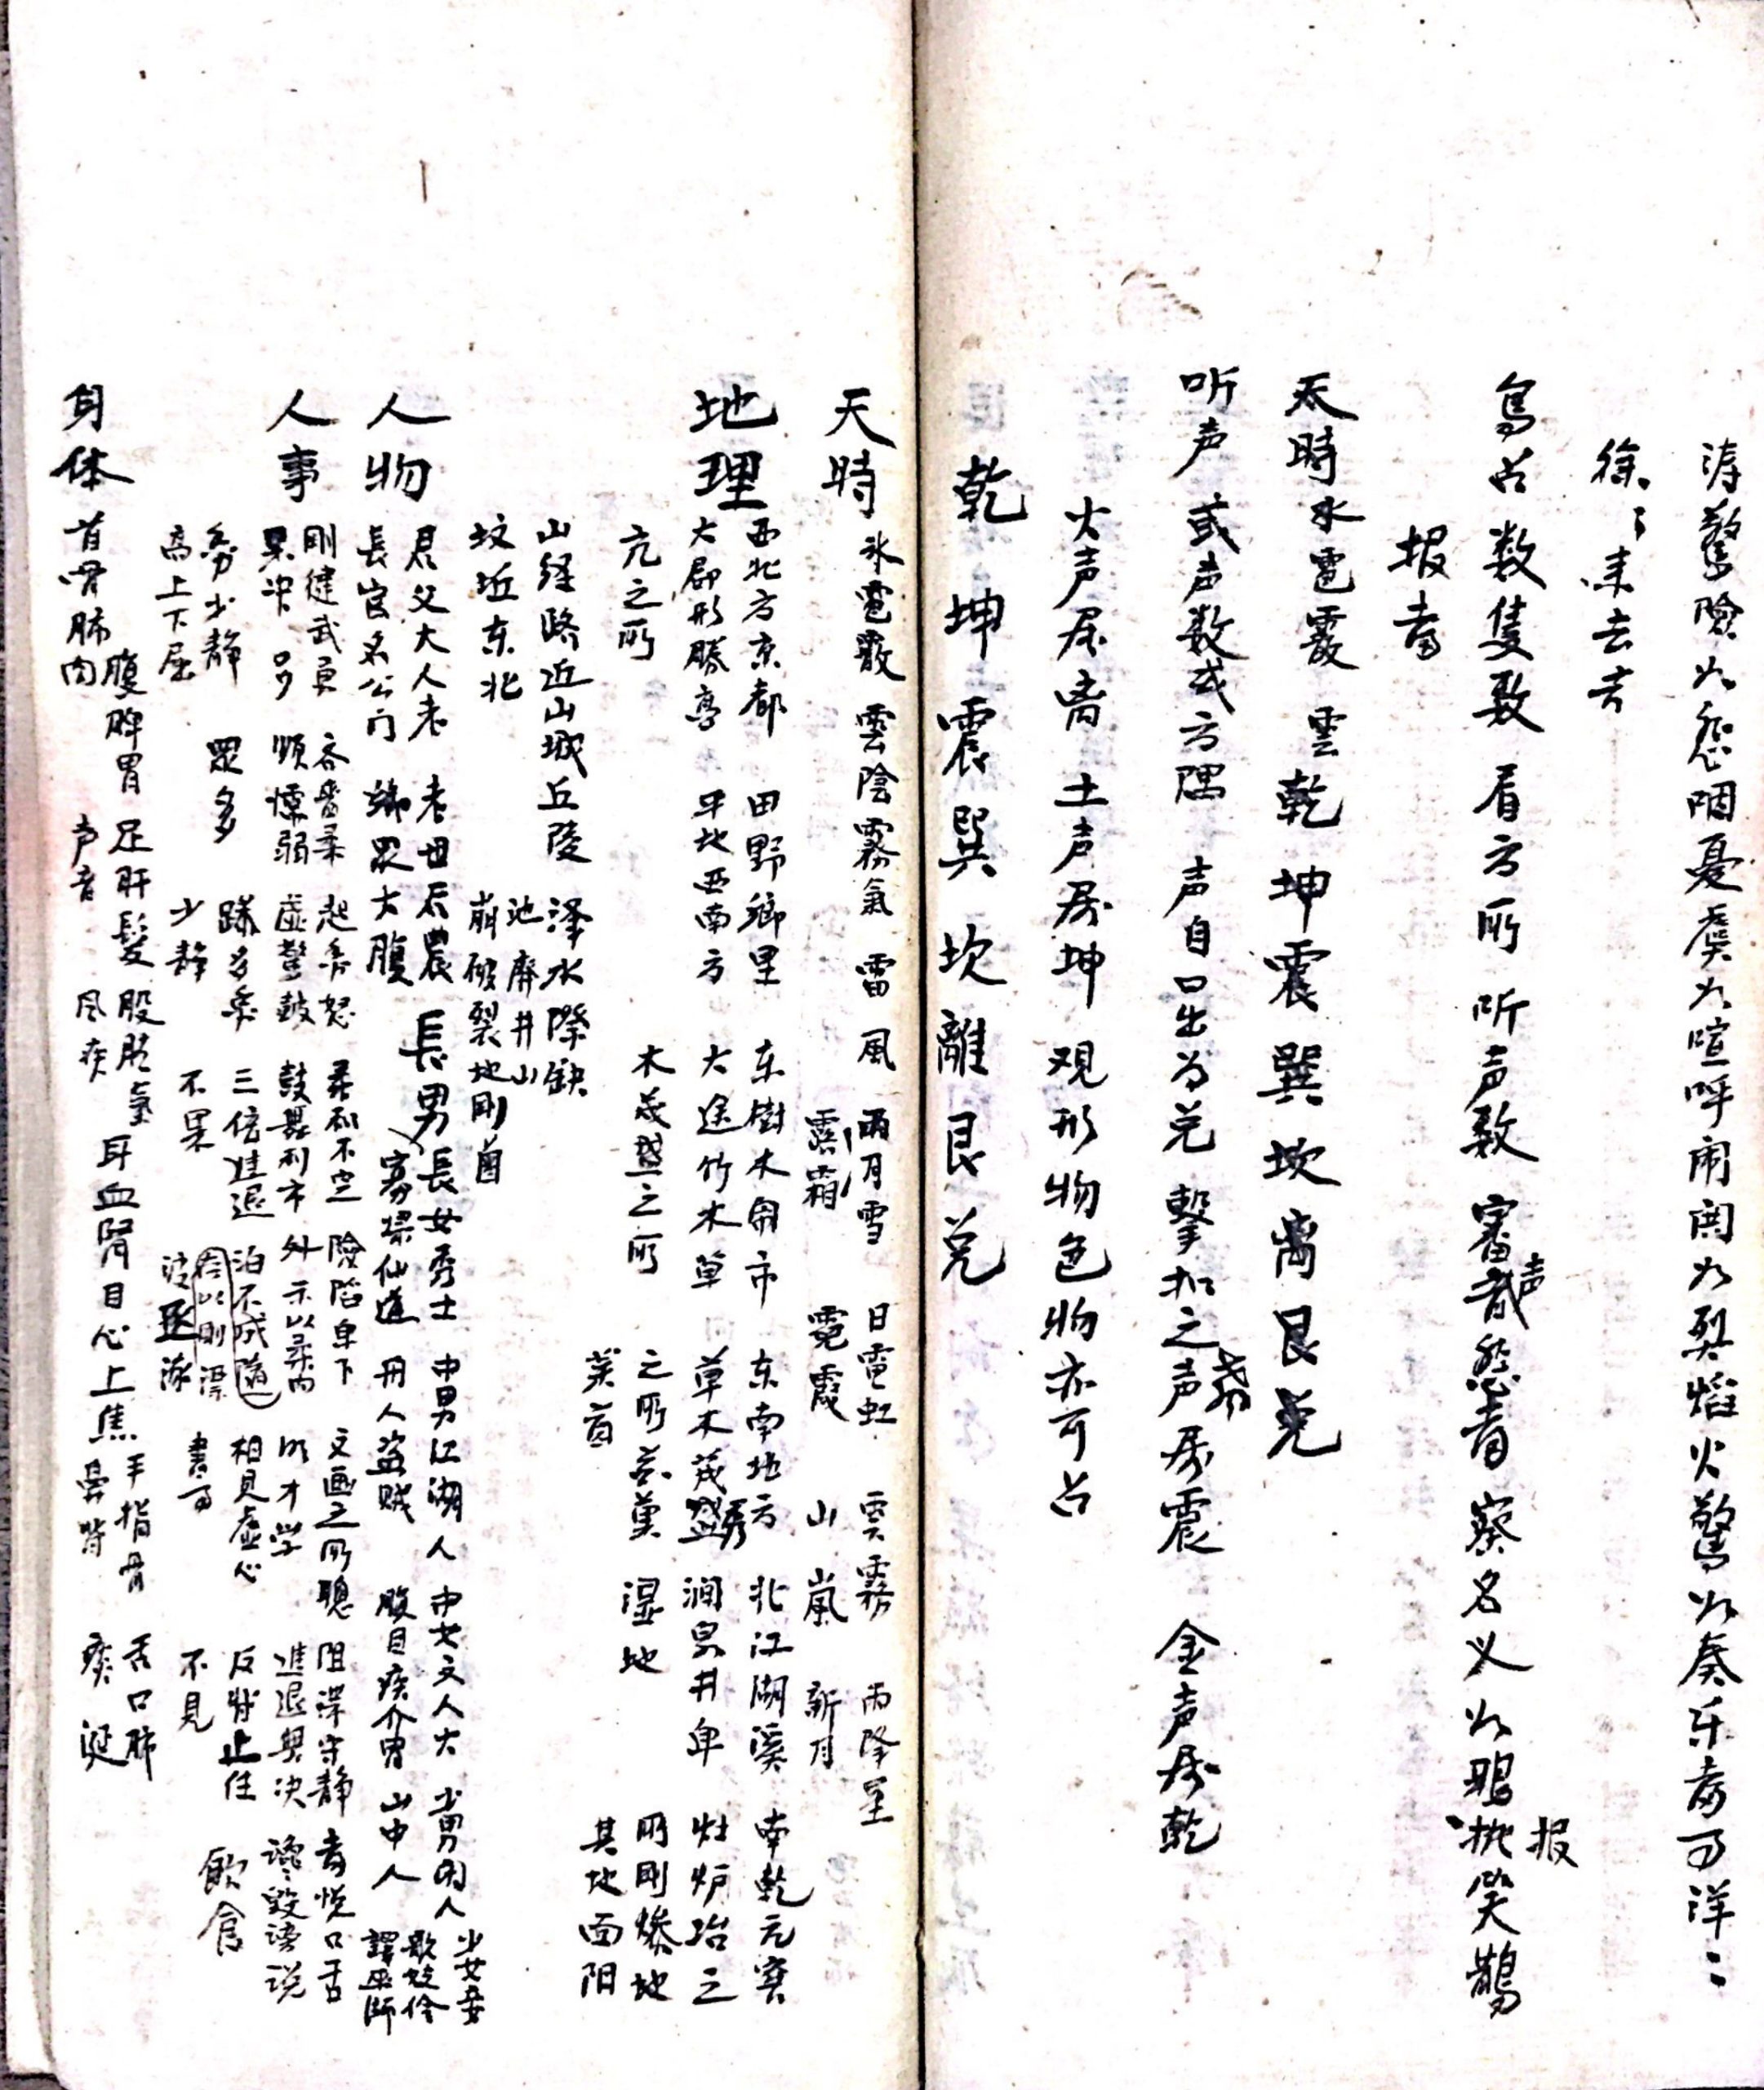 涛驚險如怨咽憂虞如喧呼闹閧如烈焰火驚如奏乐喜可洋〻
徐〻来去吉
鸟占数隻数 看方所 听声数 審声 察名义如鴞 笑鵲
报喜
报
天時水雹霰 雲乾坤震巽坎离艮兑
听声或声数或方隅 声自口出为兑 擊扣之声属震 金声属乾
火声属离 土声属坤 观形物色物亦可占
乾坤震巽坎離艮兑
天時 氷雹霰 雲陰霧氣 雷 風 雨月雪 日電虹 雲霧 雨降星
露霜 霓霞 山嵐 新月
地理 西北方京都 田野鄉里 东樹木闹市 东南地方 北江湖溪 南乾亢
大郡形勝亭 平地西南方 大途竹木草 草木茂盛 澗泉井卑 灶炉冶之
亢之所 木茂盛之所 之所 湿地 所剛燥地
其地面阳
山径路近山城丘陵 泽水際缺
池廢井山
坟丘东北 崩破裂地剛鹵
人物 君父大人老 老母后農 長男 長女秀士 中男江湖人 中女文人大 少男闲人 少女妾
長官名公门 鄉眾大腹 寡 仙道 舟人盗贼 腹目疾介胄 山中人 歌妓伶
譯巫師
人事 剛健武勇 吝嗇柔 起動怒 柔和不定 險陷卑下 文画之所聰 阻滞守静 喜悦口舌
果决 多 順懦弱 虚驚鼓 鼓 利市 外示以柔内 明才学 進退 决 讒毁谤说
動少静 眾多 躁多 三倍進退 泊不成隨 相見虚心 反背止住 飲食
高上下屈 少静 不果 波 書 不見
身体 首骨肺肉 腹脾胃 足肝髮 股肱氣 耳血腎 目心上焦 手指骨 舌口肺
声音 风疾 鼻背 痰涎